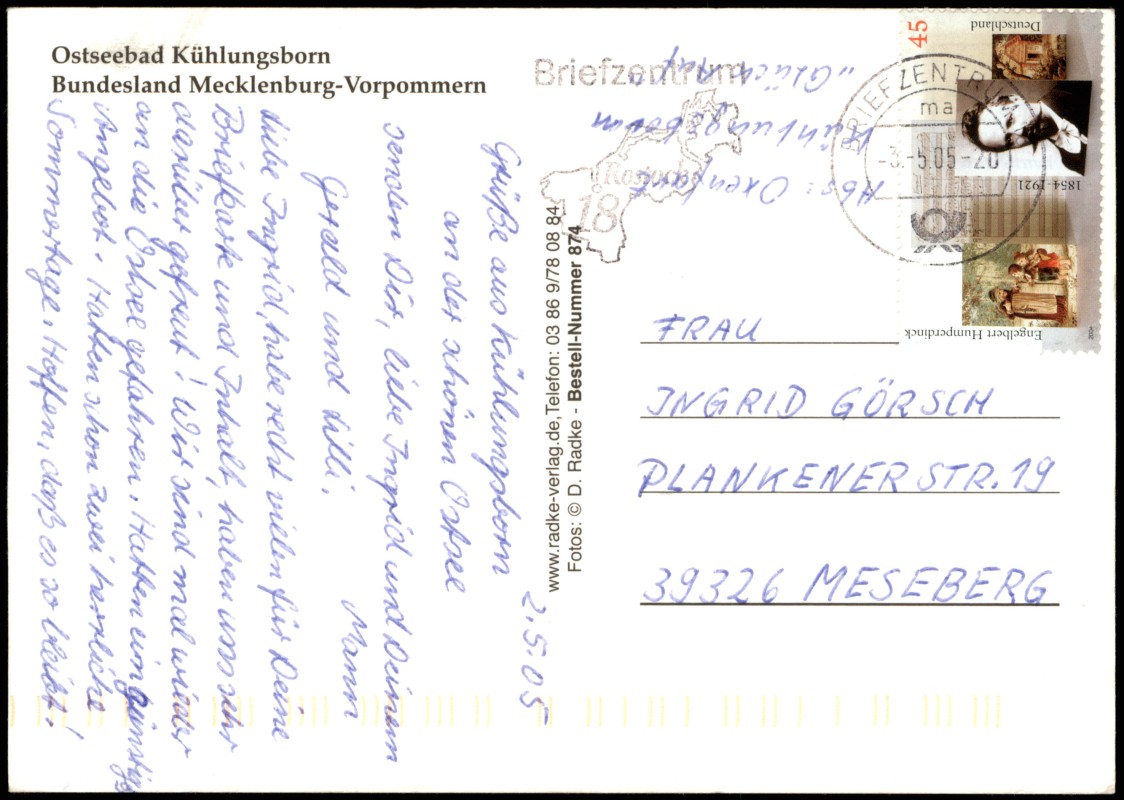 Ostseebad Kühlungsborn
Bundesland Mecklenburg-Vorpommern
2.5.05
Grüße aus Kühlungsborn
an der schönen Ostsee
senden Dir, liebe Ingrid und Deinem Mann
Gerald und Lilli.
Liebe Ingrid, habe recht vielen für Deine
Briefkarte und Inhalt, haben uns sehr
darüber gefreut! Wir sind mal wieder
an die Ostsee gefahren. Hatten ein günstiges
Angebot. Hatten schon zwei herrliche
Sommertage. Hoffen, daß es so bleibt!
www.radke-verlag.de, Telefon: 03 86 9/78 08 84
Fotos: © D. Radke - Bestell-Nummer 874
Briefzentrum
Rostock
18
BRIEFZENTRUM
ma
-3.-5.05-20
Abs:
Kühlungsborn
45
Deutschland
1854-1921
Engelbert Humperdinck
2004
FRAU
INGRID GÖRSCH
PLANKENER STR. 19
39326 MESEBERG